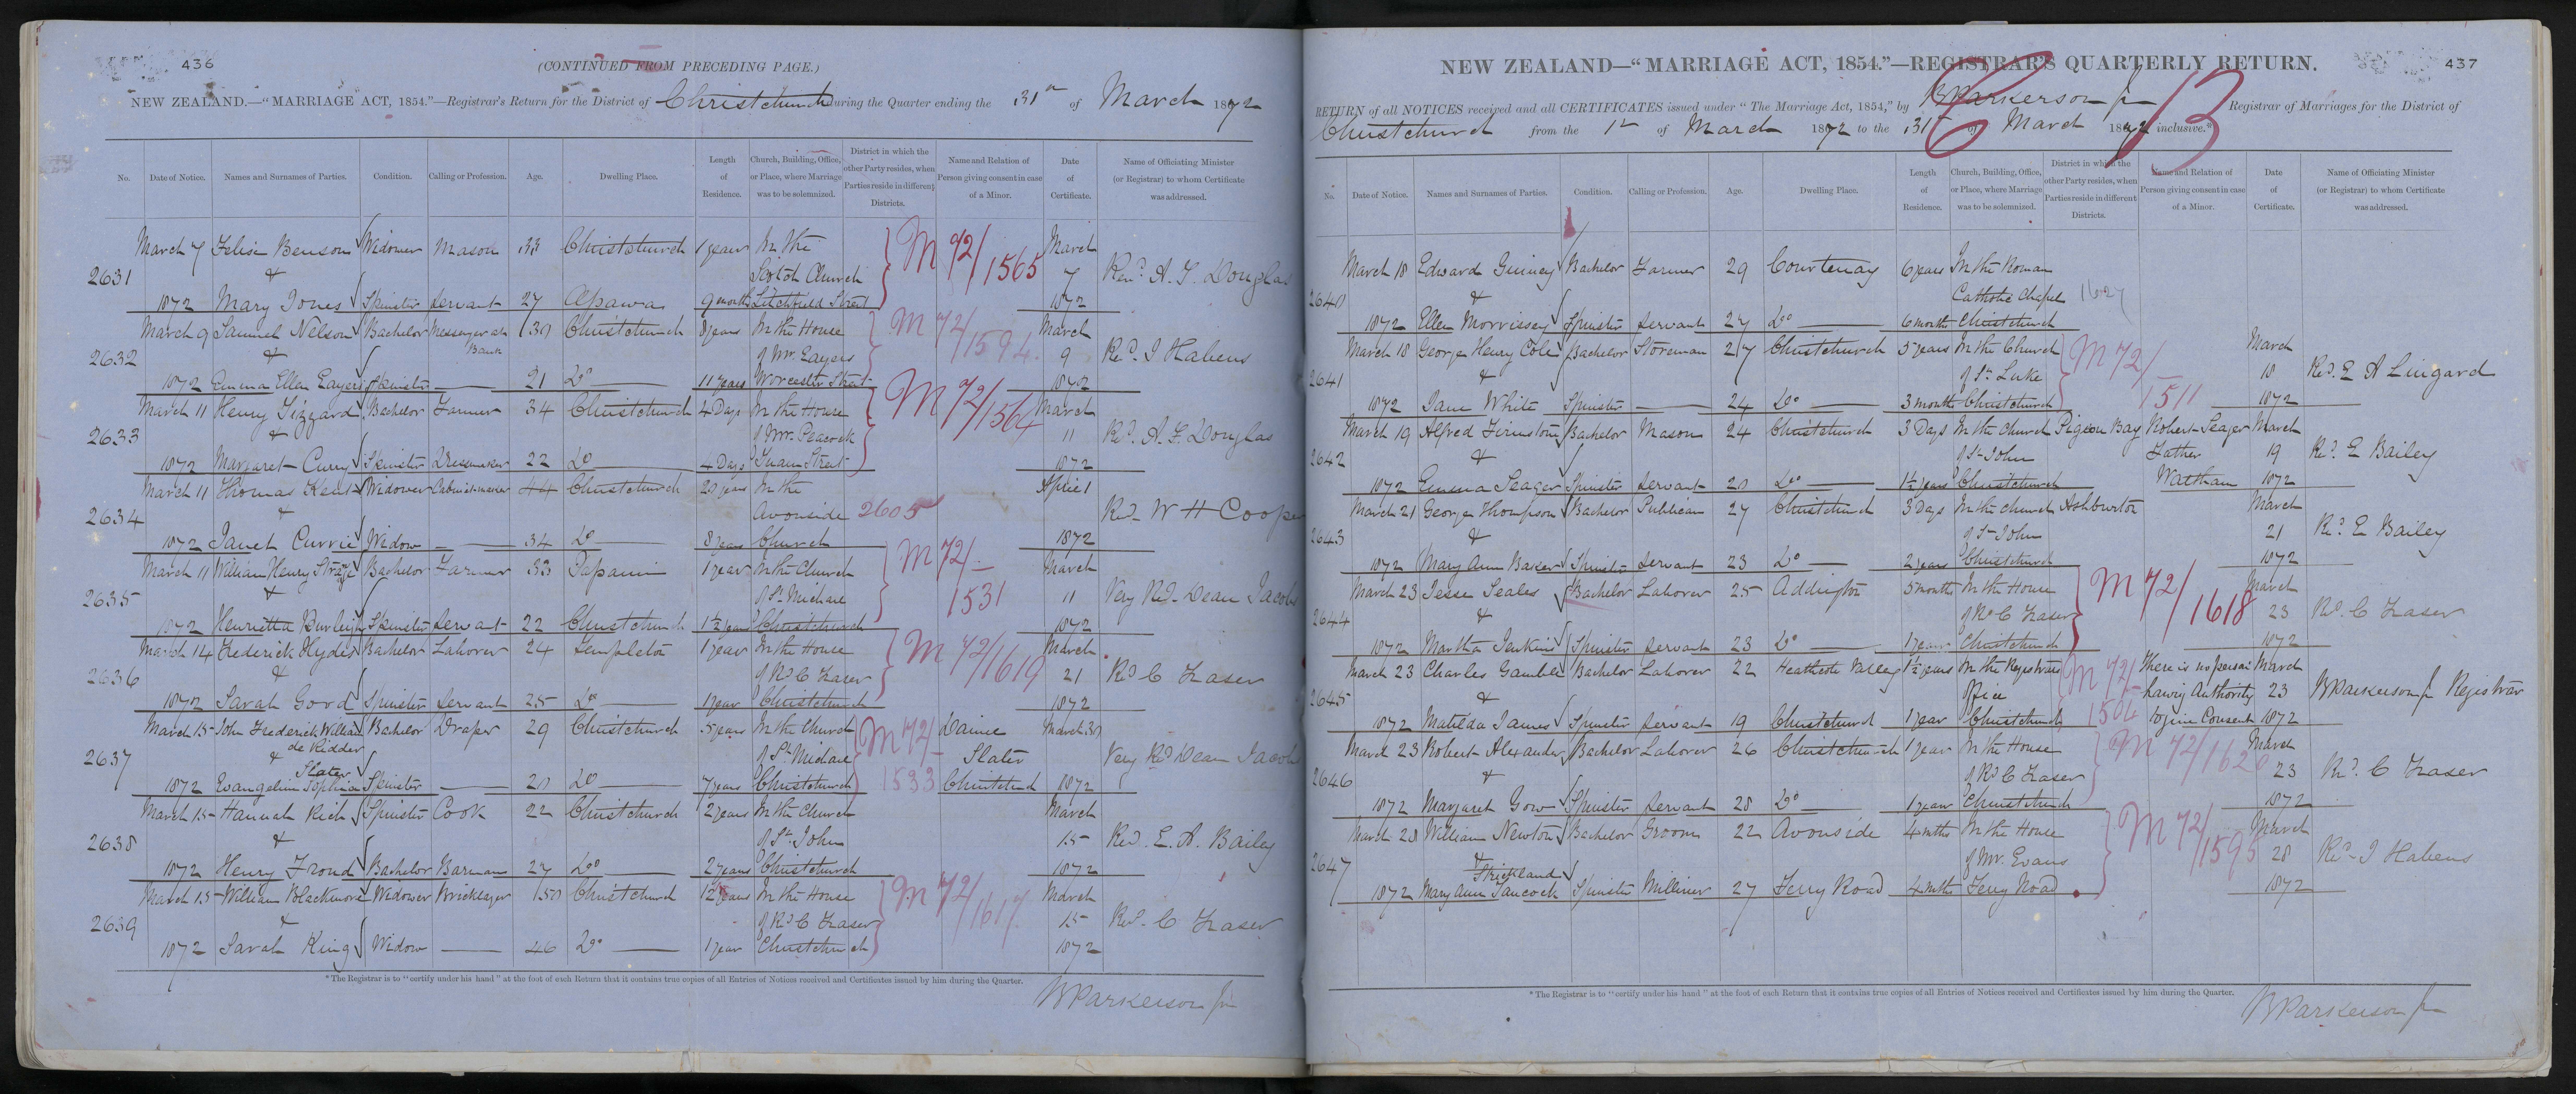 436
(CONTINUED FROM PRECEDING PAGE.)
NEW ZEALAND.—"MARRIAGE ACT, 1854."—Registrar's Return for the District of Christchurch During the Quarter ending the 31st of March 1872
No. Date of Notice. Names and Surnames of Parties. Condition. Calling or Profession. Age. Dwelling Place. Length of Residence. Church, Building, Office, or Place, where Marriage was to be solemnized. District in which the other Party resides, when Parties reside in different Districts. Name and Relation of Person giving consent in case of a Minor. Date of Certificate. Name of Officiating Minister (or Registrar) to whom Certificate was addressed.
March 7 Felise Benson Widower Mason 33 Christchurch 1 year In the March
2631 & Scotch Church M 72/1565 7 Rev. A. F. Douglas
1872 Mary Jones Spinster Servant 27 Opawa 9 months Litchfield Street 1872
March 9 Samuel Nelson Bachelor Messenger at Bank 30 Christchurch 8 years In the House March
2632 & of Mr. Eayers M 72/1594 9 Rev. J Habens
1872 Emma Ellen Eayers Spinster — 21 Do 11 years Worcester Street 1872
March 11 Henry Tizzard Bachelor Farmer 34 Christchurch 4 Days In the House March
2633 & of Mr. Peacock M 72/1564 11 Rev. A. F. Douglas
1872 Margaret Curry Spinster Dressmaker 22 Do 4 Days Tuam Street 1872
March 11 Thomas Kent Widower Cabinetmaker 44 Christchurch 20 years In the April
2634 & Avonside 2605 Rev. W H Cooper
1872 Janet Currie Widow — 34 Do 8 years Church 1872
March 11 William Henry Strange Bachelor Farmer 33 Papanui 1 year In the Church March
2635 & of St. Michael M 72/1531 11 Very Rev. Dean Jacobs
1872 Henrietta Burleigh Spinster Servant 22 Christchurch 1½ years Christchurch 1872
March 14 Frederick Hyder Bachelor Laborer 24 Templeton 1 year In the House March
2636 & of Rev C Fraser M 72/1619 21 Rev C Fraser
1872 Sarah Gord Spinster Servant 25 Do 1 year Christchurch 1872
March 15 John Frederick William de Ridder Bachelor Draper 29 Christchurch 5 years In the Church Daniel March 30
2637 & of St. Michael M 72/1533 Slater Very Rev Dean Jacobs
1872 Evangeline Sophia Slater Spinster — 20 Do 7 years Christchurch Christchurch 1872
March 15 Hannah Rich Spinster Cook 22 Christchurch 2 years In the Church March
2638 & of St. John 15 Rev. E. A. Bailey
1872 Henry Frond Bachelor Barman 27 Do 2 years Christchurch 1872
March 15 William Blackmore Widower Bricklayer 50 Christchurch 12 years In the House March
2639 & of Rev C Fraser M 72/1617 15 Rev. C Fraser
1872 Sarah King Widow — 46 Do 1 year Christchurch 1872
*The Registrar is to "certify under his hand" at the foot of each Return that it contains true copies of all Entries of Notices received and Certificates issued by him during the Quarter.
B Parkerson Jr
437
NEW ZEALAND—"MARRIAGE ACT, 1854."—REGISTRAR'S QUARTERLY RETURN.
RETURN of all NOTICES received and all CERTIFICATES issued under "The Marriage Act, 1854," by B Parkerson Jr Registrar of Marriages for the District of
Christchurch from the 1st of March 1872 to the 31st of March 1872 inclusive.*
No. Date of Notice. Names and Surnames of Parties. Condition. Calling or Profession. Age. Dwelling Place. Length of Residence. Church, Building, Office, or Place, where Marriage was to be solemnized. District in which the other Party resides, when Parties reside in different Districts. Name and Relation of Person giving consent in case of a Minor. Date of Certificate. Name of Officiating Minister (or Registrar) to whom Certificate was addressed.
March 18 Edward Guiney Bachelor Farmer 29 Courtenay 6 years In the Roman
2640 & Catholic Chapel 1627
1872 Ellen Morrissey Spinster Servant 27 Do 6 months Christchurch
March 18 George Henry Cole Bachelor Storeman 27 Christchurch 5 years In the Church March
2641 & of St. Luke M 72/1511 18 Rev. E A Lingard
1872 Jane White Spinster — 24 Do 3 months Christchurch 1872
March 19 Alfred Firmston Bachelor Mason 24 Christchurch 3 Days In the Church Pigeon Bay Robert Seager March
2642 & of St. John Father 19 Rev. E Bailey
1872 Emma Seager Spinster Servant 20 Do 1½ years Christchurch Waltham 1872
March 21 George Thompson Bachelor Publican 27 Christchurch 3 Days In the Church Ashburton March
2643 & of St. John 21 Rev. E Bailey
1872 Mary Ann Baxter Spinster Servant 23 Do 2 years Christchurch 1872
March 23 Jesse Seales Bachelor Laborer 25 Addington 5 months In the House March
2644 & of Rev C Fraser M 72/1618 23 Rev. C Fraser
1872 Martha Jenkins Spinster Servant 23 Do 1 year Christchurch 1872
March 23 Charles Gamble Bachelor Laborer 22 Heathcote Valley 1½ years In the Registrars There is no person March
2645 & Office M 72/1504 having Authority 23 B Parkerson Jr Registrar
1872 Matilda James Spinster Servant 19 Christchurch 1 year Christchurch to give Consent 1872
March 23 Robert Alexander Bachelor Laborer 26 Christchurch 1 year In the House March
2646 & of Rev C Fraser M 72/1620 23 Rev. C Fraser
1872 Margaret Gow Spinster Servant 28 Do 1 year Christchurch 1872
March 28 William Newton Bachelor Groom 22 Avonside 4 mths In the House March
2647 & of Mr. Evans M 72/1595 28 Rev. J Habens
1872 Mary Ann Strickland Hancock Spinster Milliner 27 Ferry Road 4 mths Ferry Road 1872
*The Registrar is to "certify under his hand" at the foot of each Return that it contains true copies of all Entries of Notices received and Certificates issued by him during the Quarter.
B Parkerson Jr